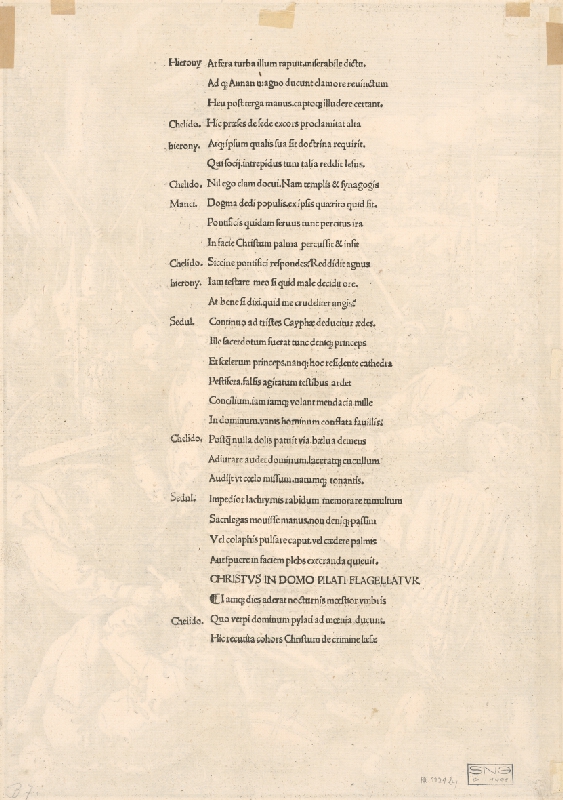 Hierony At fera turba illum rapuit, miserabile dictu.
Ad q; Annan magno ducunt clamore reuinctum
Heu post terga manus, captoq; illudere certant.
Chelido. Hic præses de sede excors proclamitat alta
hierony. Atq; ipsum qualis sua sit doctrina requirit.
Qui socij, intrepidus tum talia reddit Iesus.
Chelido. Nil ego clam docui. Nam templis & synagogis
Mantu. Dogma dedi populis, ex ipsis quærito quid sit.
Pontificis quidam seruus tunc percitus ira
In facie Christum palma percussit & insit
Chelido. Siccine pontifici respondes? Reddidit agnus
hierony. Iam testare meo si quid male decidit ore.
At bene si dixi, quid me crudeliter angis?
Sedul. Continuo ad tristes Cayphæ deducitur ædes.
Ille sacerdotum fuerat tunc deniq; princeps
Et scelerum princeps, nanq; hoc residente cathedra
Pestifera, falsis agitatum testibus ardet
Concilium, iam iamq; volant mendacia mille
In dominum, vanis hominum conflata fauillis?
Chelido. Postq̃ nulla dolis patuit via, bælua demens
Adiurare audet dominum, laceratq; cucullum
Audijt vt cœlo missum, natumq; tonantis.
Sedul. Impedior lachrymis rabidum memorare tumultum
Sacrilegas mouisse manus, non deniq; passim
Vel colaphis pulsare caput, vel cædere palmis
Aut spuere in faciem plebs execranda quieuit.
CHRISTVS IN DOMO PILATI FLAGELLATVR.
¶ Iamq; dies aderat nocturnis mœstior vmbris
Chelido. Quo verpi dominum pylati ad mœnia ducunt.
Hic recutita cohors Christum de crimine læsæ
SNG